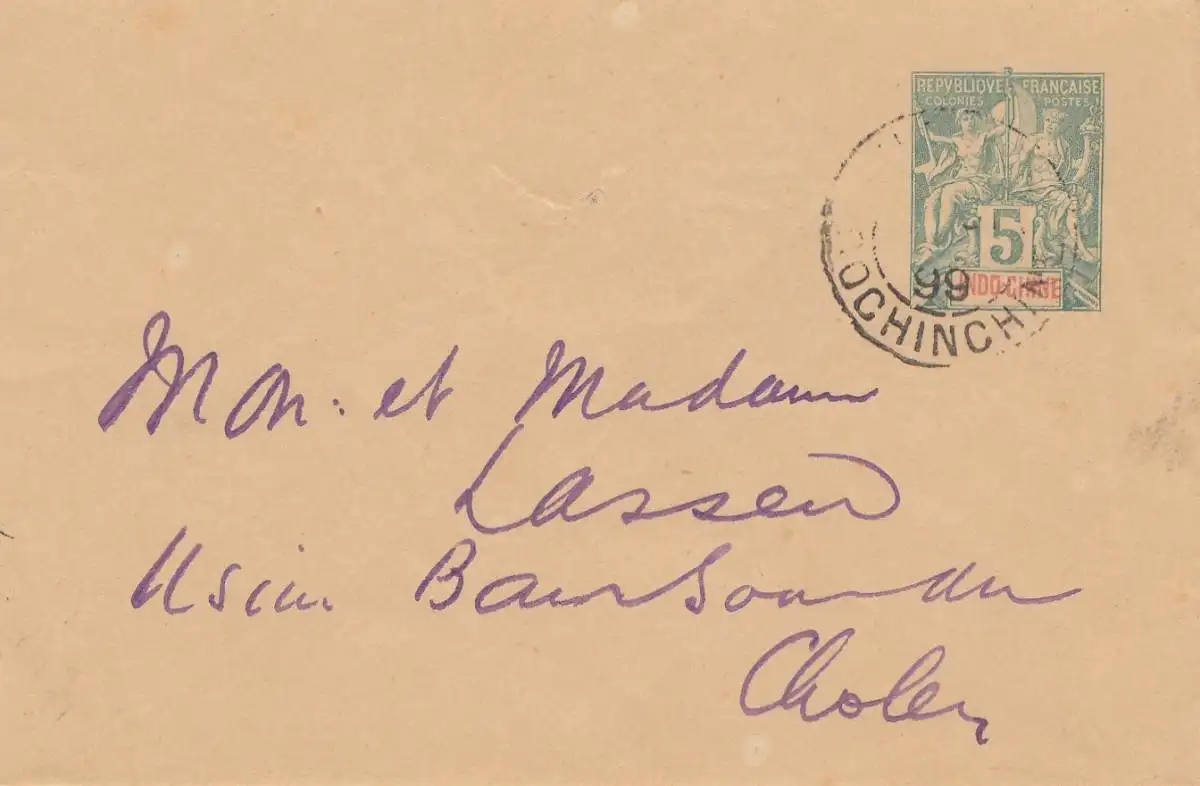 REPVBLIQVE FRANÇAISE
COLONIES POSTES
5
INDO-CHINE
99
COCHINCHINE
Mon. et Madame
Lassen
Usine
Cholon